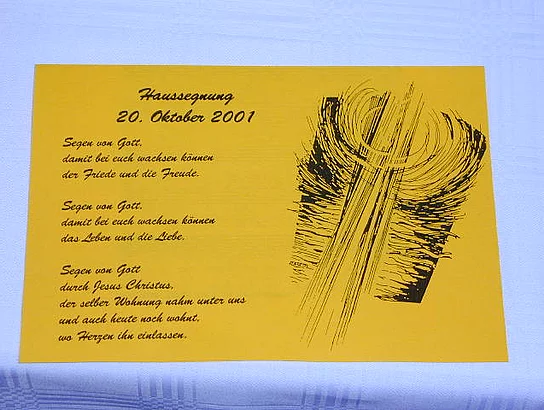 Haussegnung
20. Oktober 2001
Segen von Gott,
damit bei euch wachsen können
der Friede und die Freude.
Segen von Gott,
damit bei euch wachsen können
das Leben und die Liebe.
Segen von Gott
durch Jesus Christus,
der selber Wohnung nahm unter uns
und auch heute noch wohnt,
wo Herzen ihn einlassen.